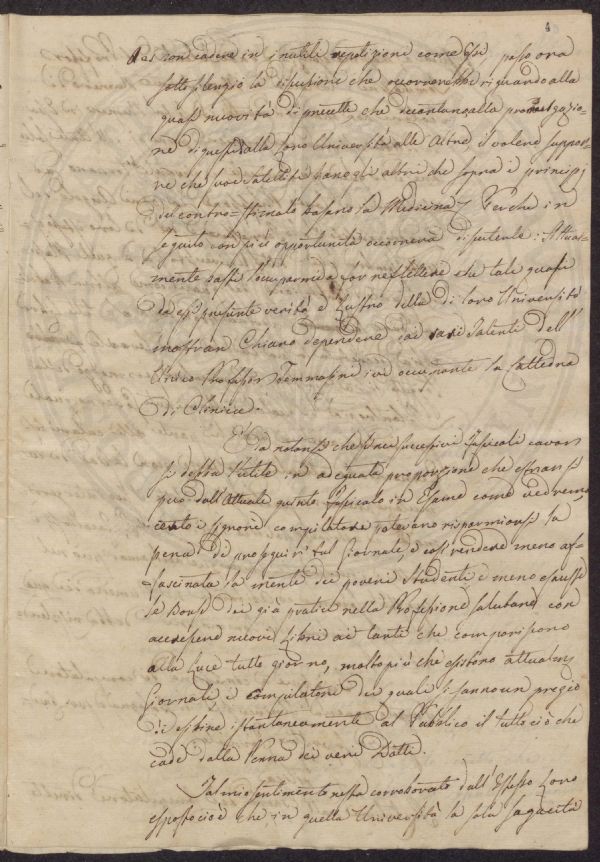 4
non cadere in inutile repetizione come Essi passo ora
sotto silenzio la discusione che occorrerebbe riguardo alla
quasi nuovità di precetti che decantano alla
ne di questi dalla loro Università alle Altre, il volere suppor-
re che siano gli altri che sopra i principj
del contro-stimolo basano la Medicina; Perchè in
seguito con più opportunità occorrerà discuterle: Attual-
mente per riflettere che tale quasi
da essi presunte verità e Lustro della di loro Università
mostran Chiaro dependere dai rari Talenti dell'
Unico Professor Tommasini ivi occupante la Cattedra
di Clinica.
E da notarsi che se nei successivi Fascicoli cavar
si debba l'utile in adeguata proporzione che estrarsi
può dall'Attuale quinto Fascicolo in Esame come vedremo,
certo i Signori compilatori potevano risparmiarsi la
pena di proseguir tal Giornale, e così rendere meno af-
fascinata la mente dei poveri Studenti e meno
le Borse dei già pratici nella Professione Salutare con
accrescere nuovi Libri ai tanti che compariscono
alla Luce tutto giorno, molto più che esistono
Giornali i Compilatori dei quali si fanno un pregio
di esibire istantaneamente al Pubblico il tutto ciò che
cade dalla Penna dei veri Dotti.
Tal mio sentimento resta corroborato dall'Espesso Loro
esposto cioè che in quella Università la sola sagacità